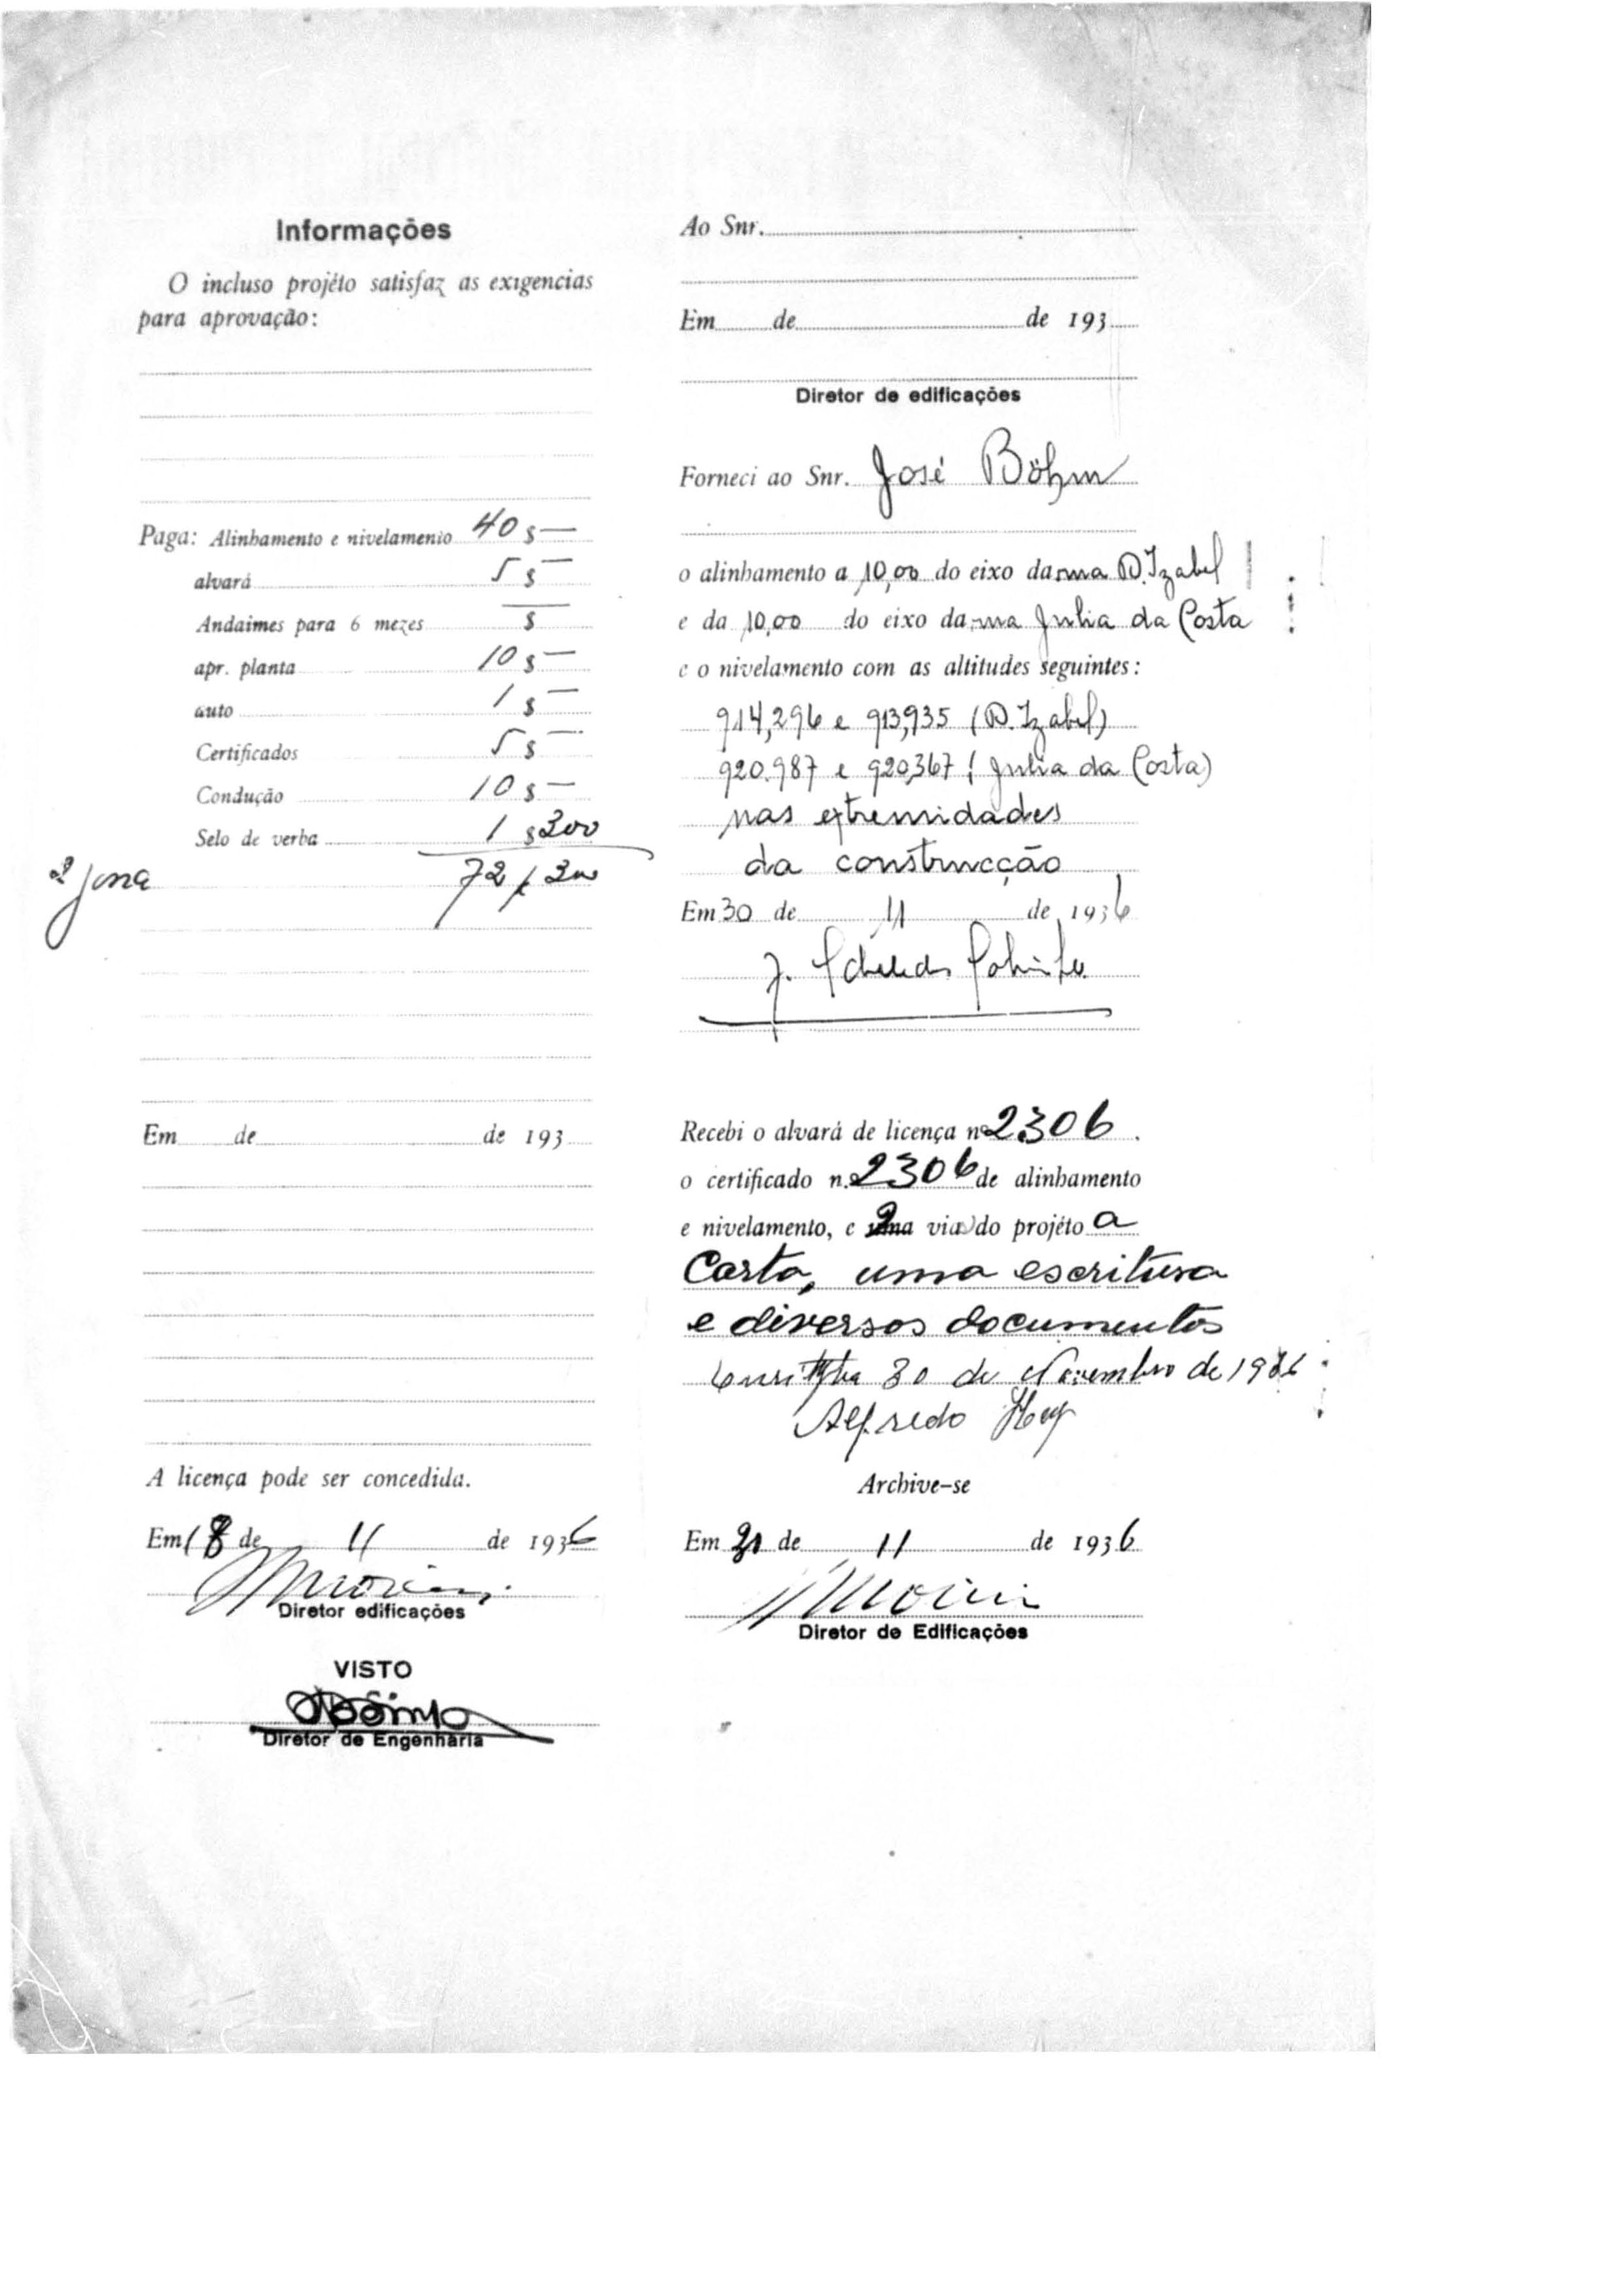 Informações
O incluso projéto satisfaz as exigencias
para aprovação:
Paga: Alinhamento e nivelamento 40 $ —
alvará 5 $ —
Andaimes para 6 mezes — $
apr. planta 10 $ —
auto 1 $ —
Certificados 5 $ —
Condução 10 $ —
Selo de verba 1 $ 300
72 $ 300
Em de de 193
A licença pode ser concedida.
Em 18 de 11 de 1936
Diretor edificações
VISTO
Diretor de Engenharia
Ao Snr.
Em de de 193
Diretor de edificações
Forneci ao Snr. José Böhm
o alinhamento a 10,00 do eixo da rua D. Izabel
e da 10,00 do eixo da rua Julia da Costa
e o nivelamento com as altitudes seguintes:
914,296 e 913,935 (D. Izabel)
920.987 e 920,367 (Julia da Costa)
nas extremidades
da construcção
Em 30 de 11 de 1936
Recebi o alvará de licença nº 2306.
o certificado n. 2306 de alinhamento
e nivelamento, e 2 via do projéto a
Carta, uma escritura
e diversos documentos
Curityba 30 de Novembro de 1936
Alfredo
Archive-se
Em de 11 de 1936
Diretor de Edificações